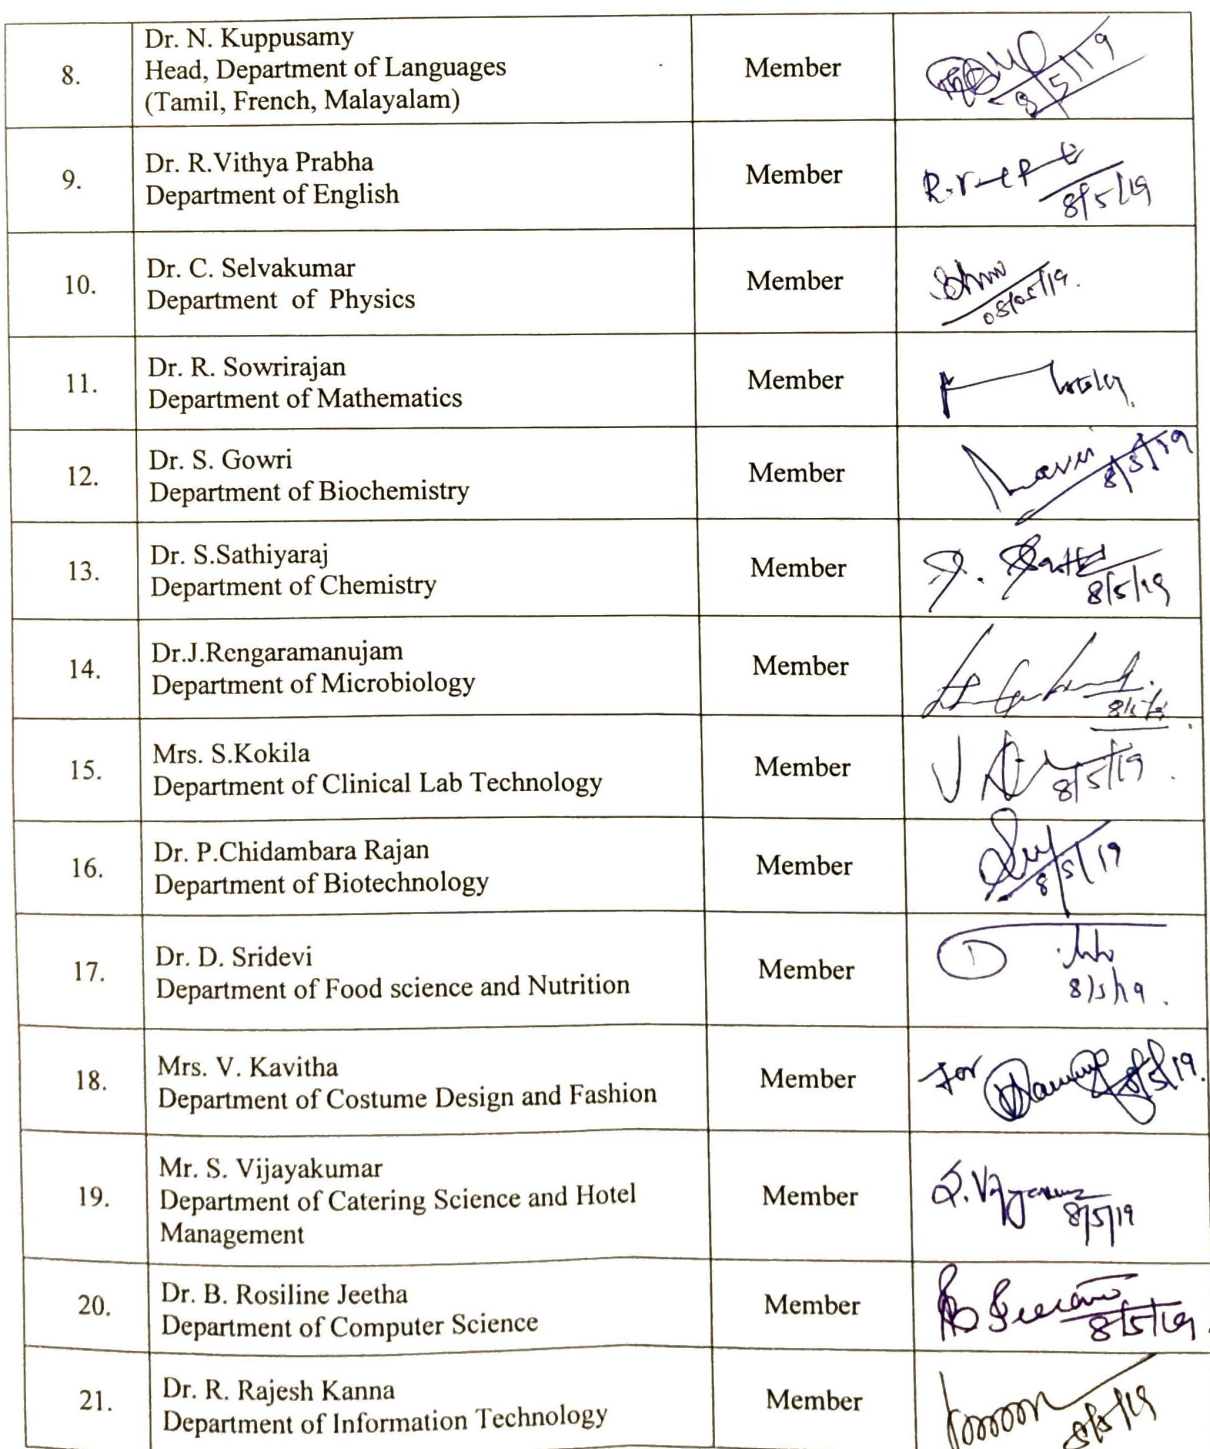 8.
Dr. N. Kuppusamy
Head, Department of Languages
(Tamil, French, Malayalam)
Member
8/5/19
9.
Dr. R.Vithya Prabha
Department of English
Member
8/5/19
10.
Dr. C. Selvakumar
Department of Physics
Member
08/05/19.
11.
Dr. R. Sowrirajan
Department of Mathematics
Member
12.
Dr. S. Gowri
Department of Biochemistry
Member
8/5/19
13.
Dr. S.Sathiyaraj
Department of Chemistry
Member
8/5/19
14.
Dr.J.Rengaramanujam
Department of Microbiology
Member
15.
Mrs. S.Kokila
Department of Clinical Lab Technology
Member
8/5/19.
16.
Dr. P.Chidambara Rajan
Department of Biotechnology
Member
8/5/19
17.
Dr. D. Sridevi
Department of Food science and Nutrition
Member
D
8/5/19.
18.
Mrs. V. Kavitha
Department of Costume Design and Fashion
Member
for
8/5/19.
19.
Mr. S. Vijayakumar
Department of Catering Science and Hotel
Management
Member
8/5/19
20.
Dr. B. Rosiline Jeetha
Department of Computer Science
Member
8/5/19.
21.
Dr. R. Rajesh Kanna
Department of Information Technology
Member
8/5/19